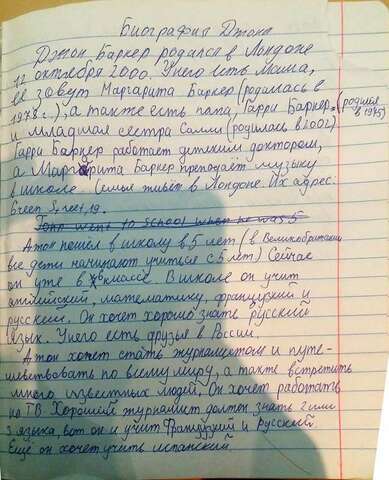 Биография Джона
Джон Баркер родился в Лондоне
12 октября 2000. У него есть мама,
её зовут Маргарита Баркер (родилась в
1978 г.), а также есть папа, Гарри Баркер (родился в 1975)
и младшая сестра Салли (родилась в 2002)
Гарри Баркер работает детским доктором,
а Маргарита Баркер преподаёт музыку
в школе. Семья живёт в Лондоне. Их адрес:
Green Street, 19.
John went to school when he was 5
Джон пошел в школу в 5 лет (в Великобритании
все дети начинают учиться с 5 лет) Сейчас
он уже в 7 классе. В школе он учит
английский, математику, французский и
русский. Он хочет хорошо знать русский
язык. У него есть друзья в России.
Джон хочет стать журналистом и путе-
шествовать по всему миру, а также встретить
много известных людей. Он хочет работать
на ТВ Хороший журналист должен знать 2 или
3 языка, вот он и учит Французский и русский.
Ещё он хочет учить испанский.